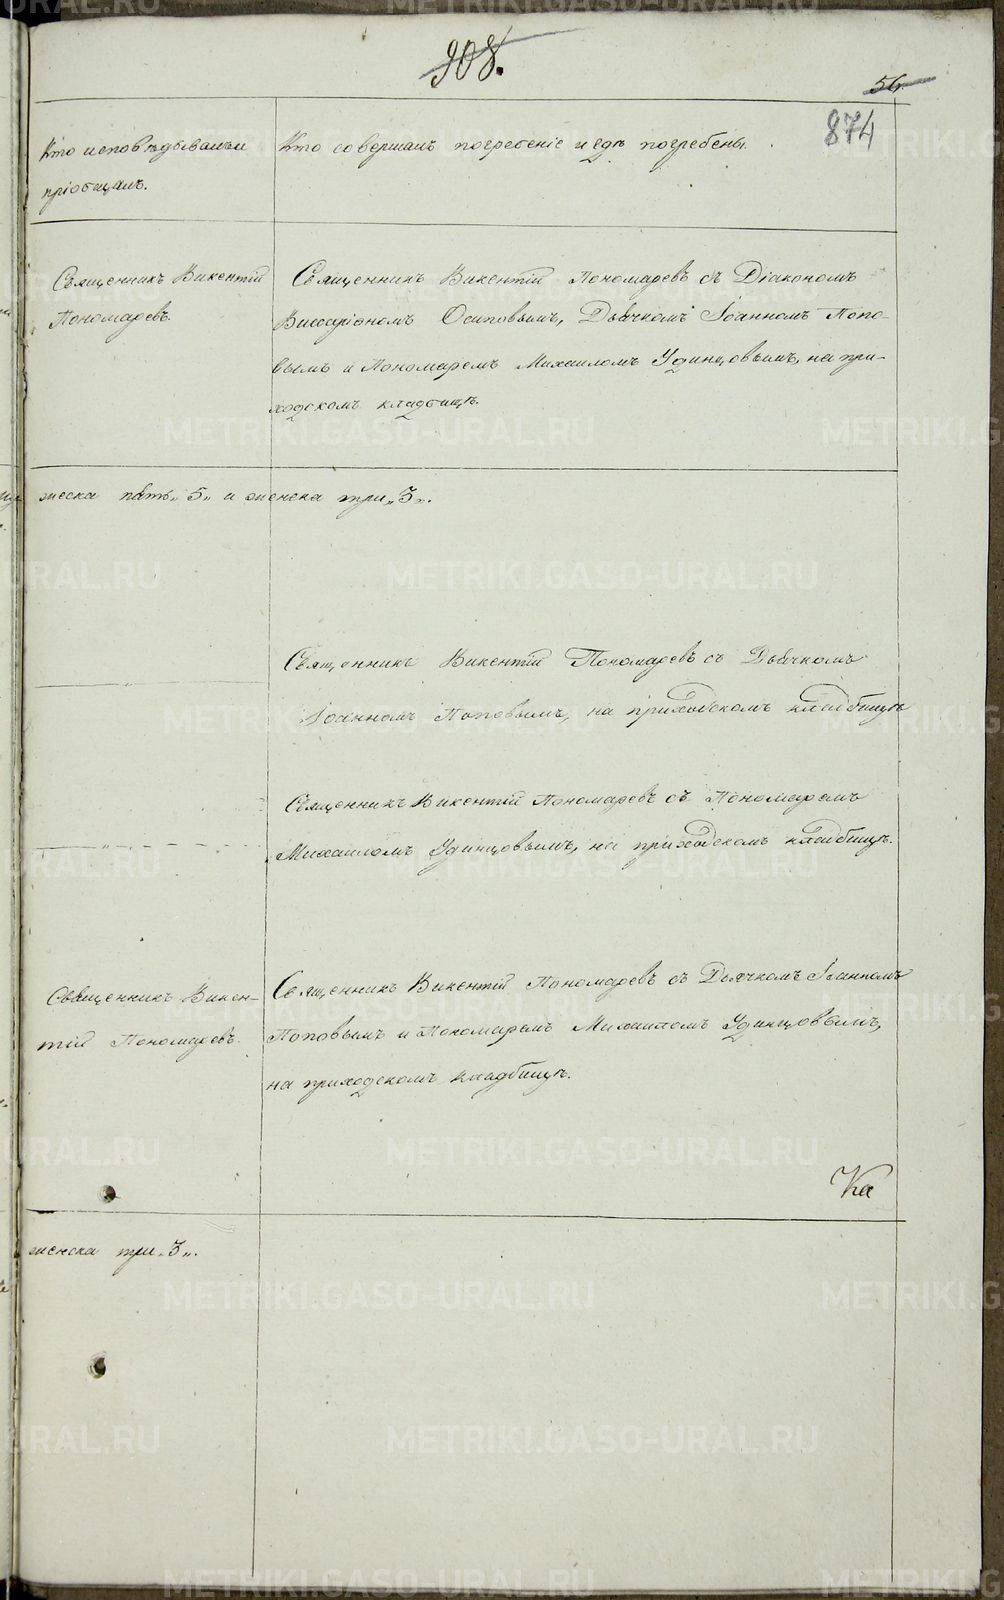 908.
56.
874
Кто исповѣдывалъ и
пріобщалъ.
Кто совершалъ погребеніе и гдѣ погребены.
Священникъ Викентій
Пономаревъ.
Священникъ Викентій Пономаревъ съ Діакономъ
Виссаріономъ Осиповымъ, Дьячкомъ Іоанномъ Попо-
вымъ и Пономаремъ Михаиломъ Удинцовымъ, на при-
ходскомъ кладбищѣ.
жеска пять „5„ и женска три „3„.
Священникъ Викентій Пономаревъ съ Дьячкомъ
Іоанномъ Поповымъ, на приходскомъ кладбищѣ
Священникъ Викентій Пономаревъ съ Пономаремъ
Михаиломъ Удинцовымъ, на приходскомъ кладбищѣ.
Священникъ Викен-
тій Пономаревъ.
Священникъ Викентій Пономаревъ съ Дьячкомъ Іоанномъ
Поповымъ и Пономаремъ Михаиломъ Удинцовымъ,
на приходскомъ кладбищѣ.
Ка
женска три „3„.
METRIKI.GASO-URAL.RU